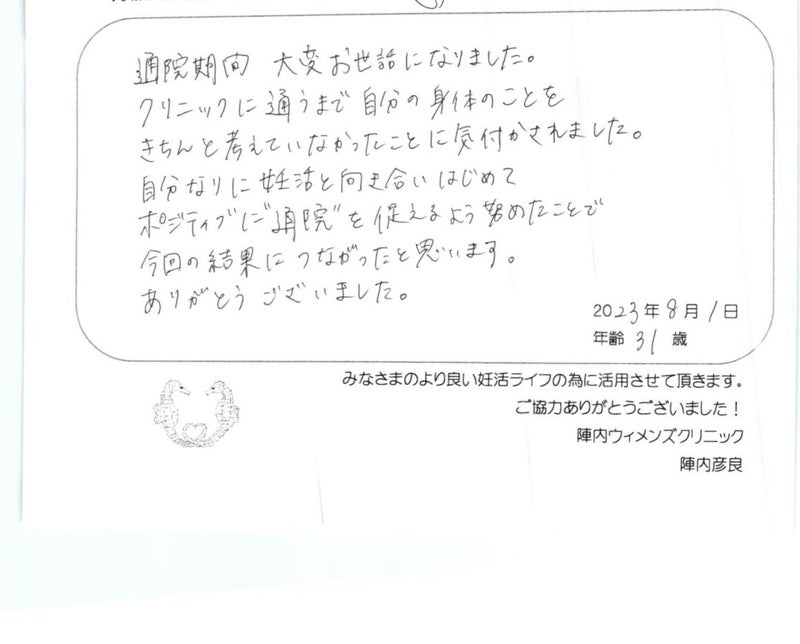 通院期間 大変お世話になりました。
クリニックに通うまで自分の身体のことを
きちんと考えていなかったことに気付かされました。
自分なりに妊活と向き合いはじめて
ポジティブに"通院"を捉えるよう努めたことで
今回の結果につながったと思います。
ありがとうございました。
2023年8月1日
年齢 31 歳
みなさまのより良い妊活ライフの為に活用させて頂きます。
ご協力ありがとうございました！
陣内ウィメンズクリニック
陣内彦良